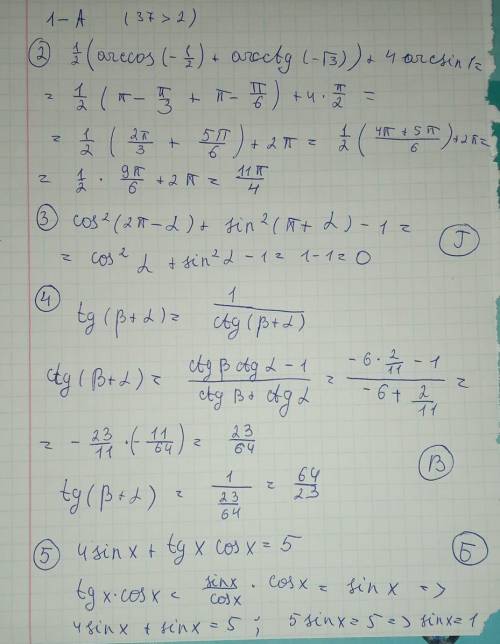 1-A (37 > 2)
② 1/2 (arccos(-1/2) + arcctg(-√3)) + 4 arcsin 1 =
= 1/2 (π - π/3 + π - π/6) + 4 · π/2 =
= 1/2 (2π/3 + 5π/6) + 2π = 1/2 ((4π + 5π)/6) + 2π =
= 1/2 · 9π/6 + 2π = 11π/4
③ cos²(2π - α) + sin²(π + α) - 1 =
= cos² α + sin² α - 1 = 1 - 1 = 0 Г
④ tg(β+α) = 1/ctg(β+α)
ctg(β+α) = (ctg β ctg α - 1)/(ctg β + ctg α) = (-6 · 2/11 - 1)/(-6 + 2/11) =
= - 23/11 · (- 11/64) = 23/64
tg(β+α) = 1/(23/64) = 64/23 В
⑤ 4 sin x + tg x cos x = 5 Б
tg x · cos x = sin x/cos x · cos x = sin x =>
4 sin x + sin x = 5 ; 5 sin x = 5 => sin x = 1